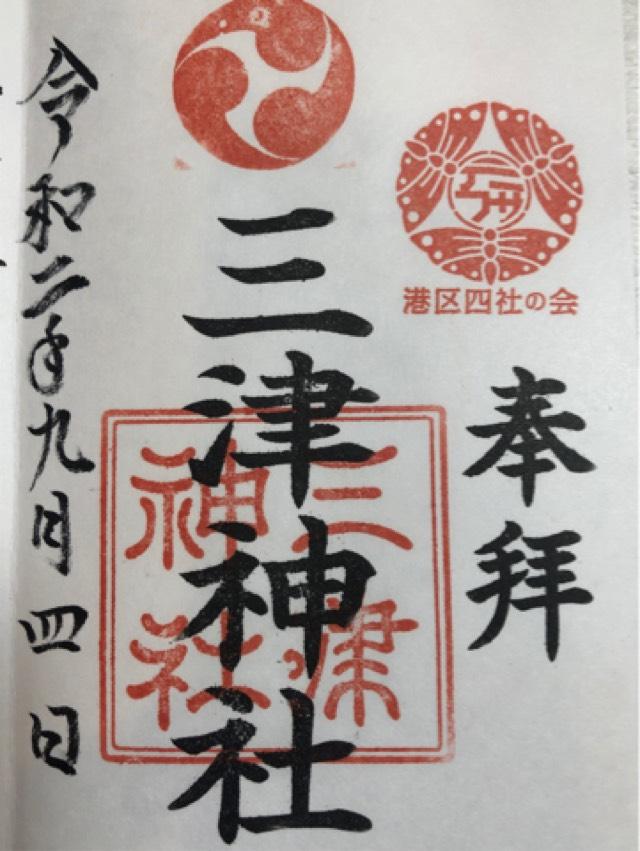 港区四社の会
奉拝
三津神社
三津
神社
令和二年九月四日